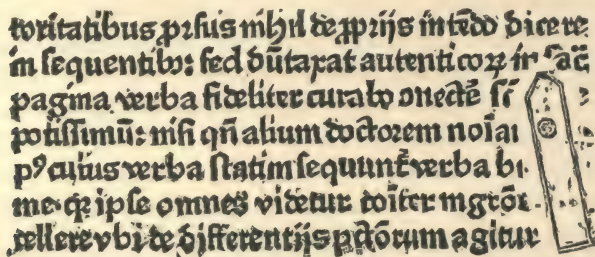 toritatibus prsus nihil de ꝓprijs intēdo dicere
in sequentibꝰ: sed dūtaxat autenticoꝝ in sac̄
pagina verba fideliter curabo ꝯnectē
potissimū: nisi qn̄ alium doctorem
pꝰ cuius verba statim sequunt̄ verba
me. ꝙ ipse omnes videtur
tellere vbi de differentijs pctōrum agitur